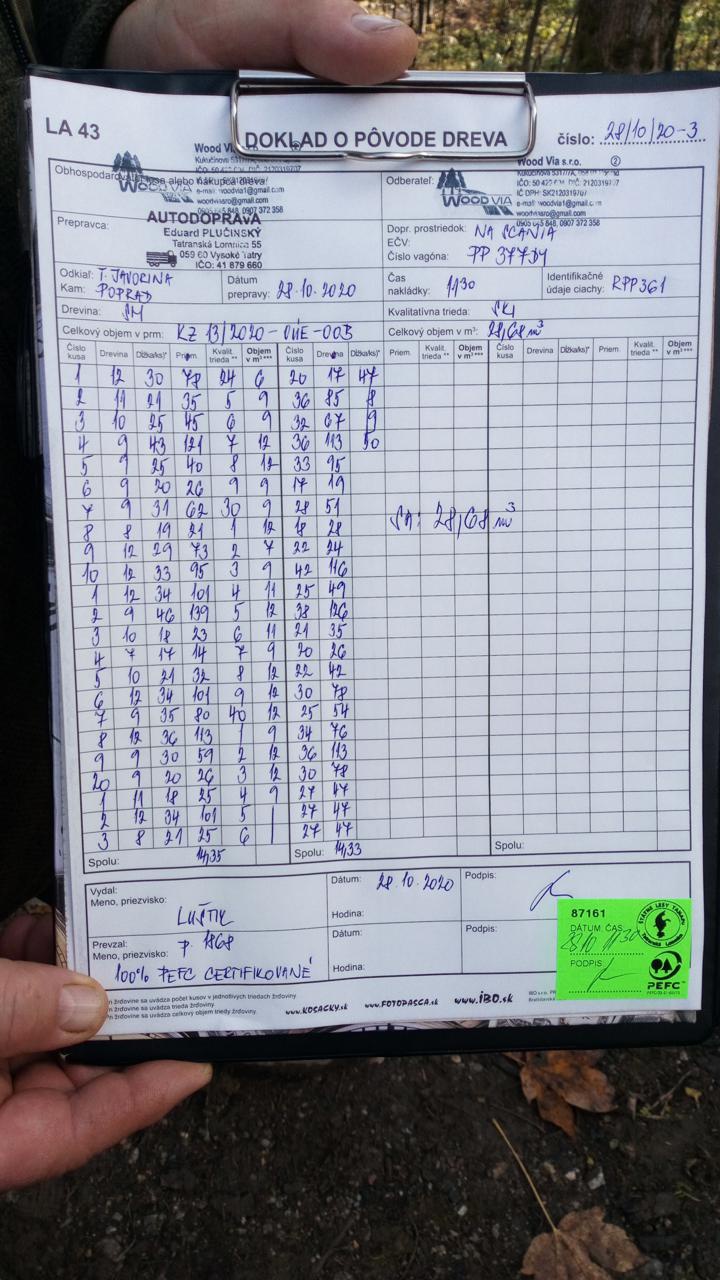 LA 43
DOKLAD O PÔVODE DREVA
číslo: 28/10/20-3
Wood Via s.r.o. ②
WOOD VIA
e-mail: woodvia1@gmail.com
0905 645 848, 0907 372 358
Prepravca:
AUTODOPRAVA
Eduard PLUČINSKÝ
Tatranská Lomnica 55
059 60 Vysoké Tatry
IČO: 41 879 660
Odberateľ:
WOOD VIA
IČ DPH: SK2120319707
0905 645 848, 0907 372 358
Dopr. prostriedok: NA SCANIA
EČV:
Číslo vagóna: PP 377DY
Odkiaľ: T. JAVORINA
Kam: POPRAD
Dátum prepravy: 28.10.2020
Čas nakládky: 1130
Identifikačné údaje ciachy: RPP361
Drevina: SM
Kvalitatívna trieda:
Celkový objem v prm: KZ 13/2020-
Celkový objem v m³: 28,68 m³
Číslo kusa Drevina Dĺžka/ks)* Priem. Kvalit. trieda ** Objem v m³ *** Číslo kusa Drevina Dĺžka/ks)* Priem. Kvalit. trieda ** Objem v m³ *** Číslo kusa Drevina Dĺžka/ks)* Priem. Kvalit. trieda ** Objem v m³ ***
1 12 30 78 24 6 20 17 47
2 11 21 35 5 9 36 85 8
3 10 25 45 6 9 32 67 9
4 9 43 121 7 12 36 113 50
5 9 25 40 8 12 33 95
6 9 20 26 9 9 17 19
7 9 31 62 30 9 28 51
8 8 19 21 1 12 18 28
9 12 29 73 2 7 22 24
10 12 33 95 3 9 42 116
1 12 34 101 4 11 25 49
2 9 46 139 5 12 38 126
3 10 18 23 6 11 21 35
4 7 17 14 7 9 20 26
5 10 21 32 8 12 22 42
6 12 34 101 9 12 30 78
7 9 35 80 40 12 25 54
8 12 36 113 1 9 34 76
9 9 30 59 2 12 36 113
20 9 20 26 3 12 30 78
1 11 18 25 4 9 27 47
2 12 34 101 5 | 27 47
3 8 21 25 6 | 27 47
28,68 m³
Spolu: 14,35 Spolu: 14,33 Spolu:
Vydal:
Meno, priezvisko:
Dátum: 28.10.2020
Hodina:
Podpis:
Prevzal:
Meno, priezvisko: P. 1868
Dátum:
Hodina:
Podpis:
100% PEFC CERTIFIKOVANÉ
87161
DÁTUM, ČAS
28.10 1130
PODPIS
ŠTÁTNE LESY TANAPu
Tatranská Lomnica
PEFC
žrďovine sa uvádza počet kusov v jednotlivých triedach žrďoviny
žrďovine sa uvádza trieda žrďoviny.
žrďovine sa uvádza celkový objem triedy žrďoviny.
www.KOSACKY.sk www.FOTOPASCA.sk www.iBO.sk